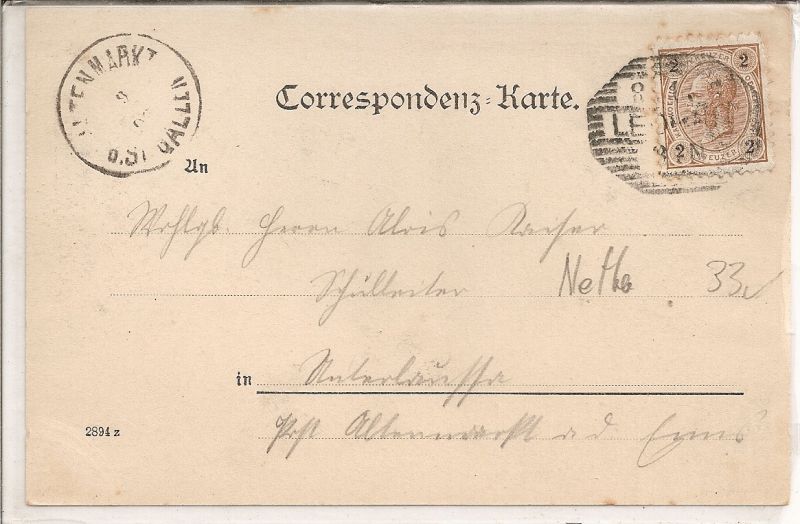 ALTENMARKT
b.ST GALLEN
Correspondenz-Karte.
2 2
2 KREUZER 2
LE
An
Wohlgb. Herrn Alois Kaiser
Schulleiter
33
in Unterlaussa
Post Altenmarkt a d Enns
2894 z